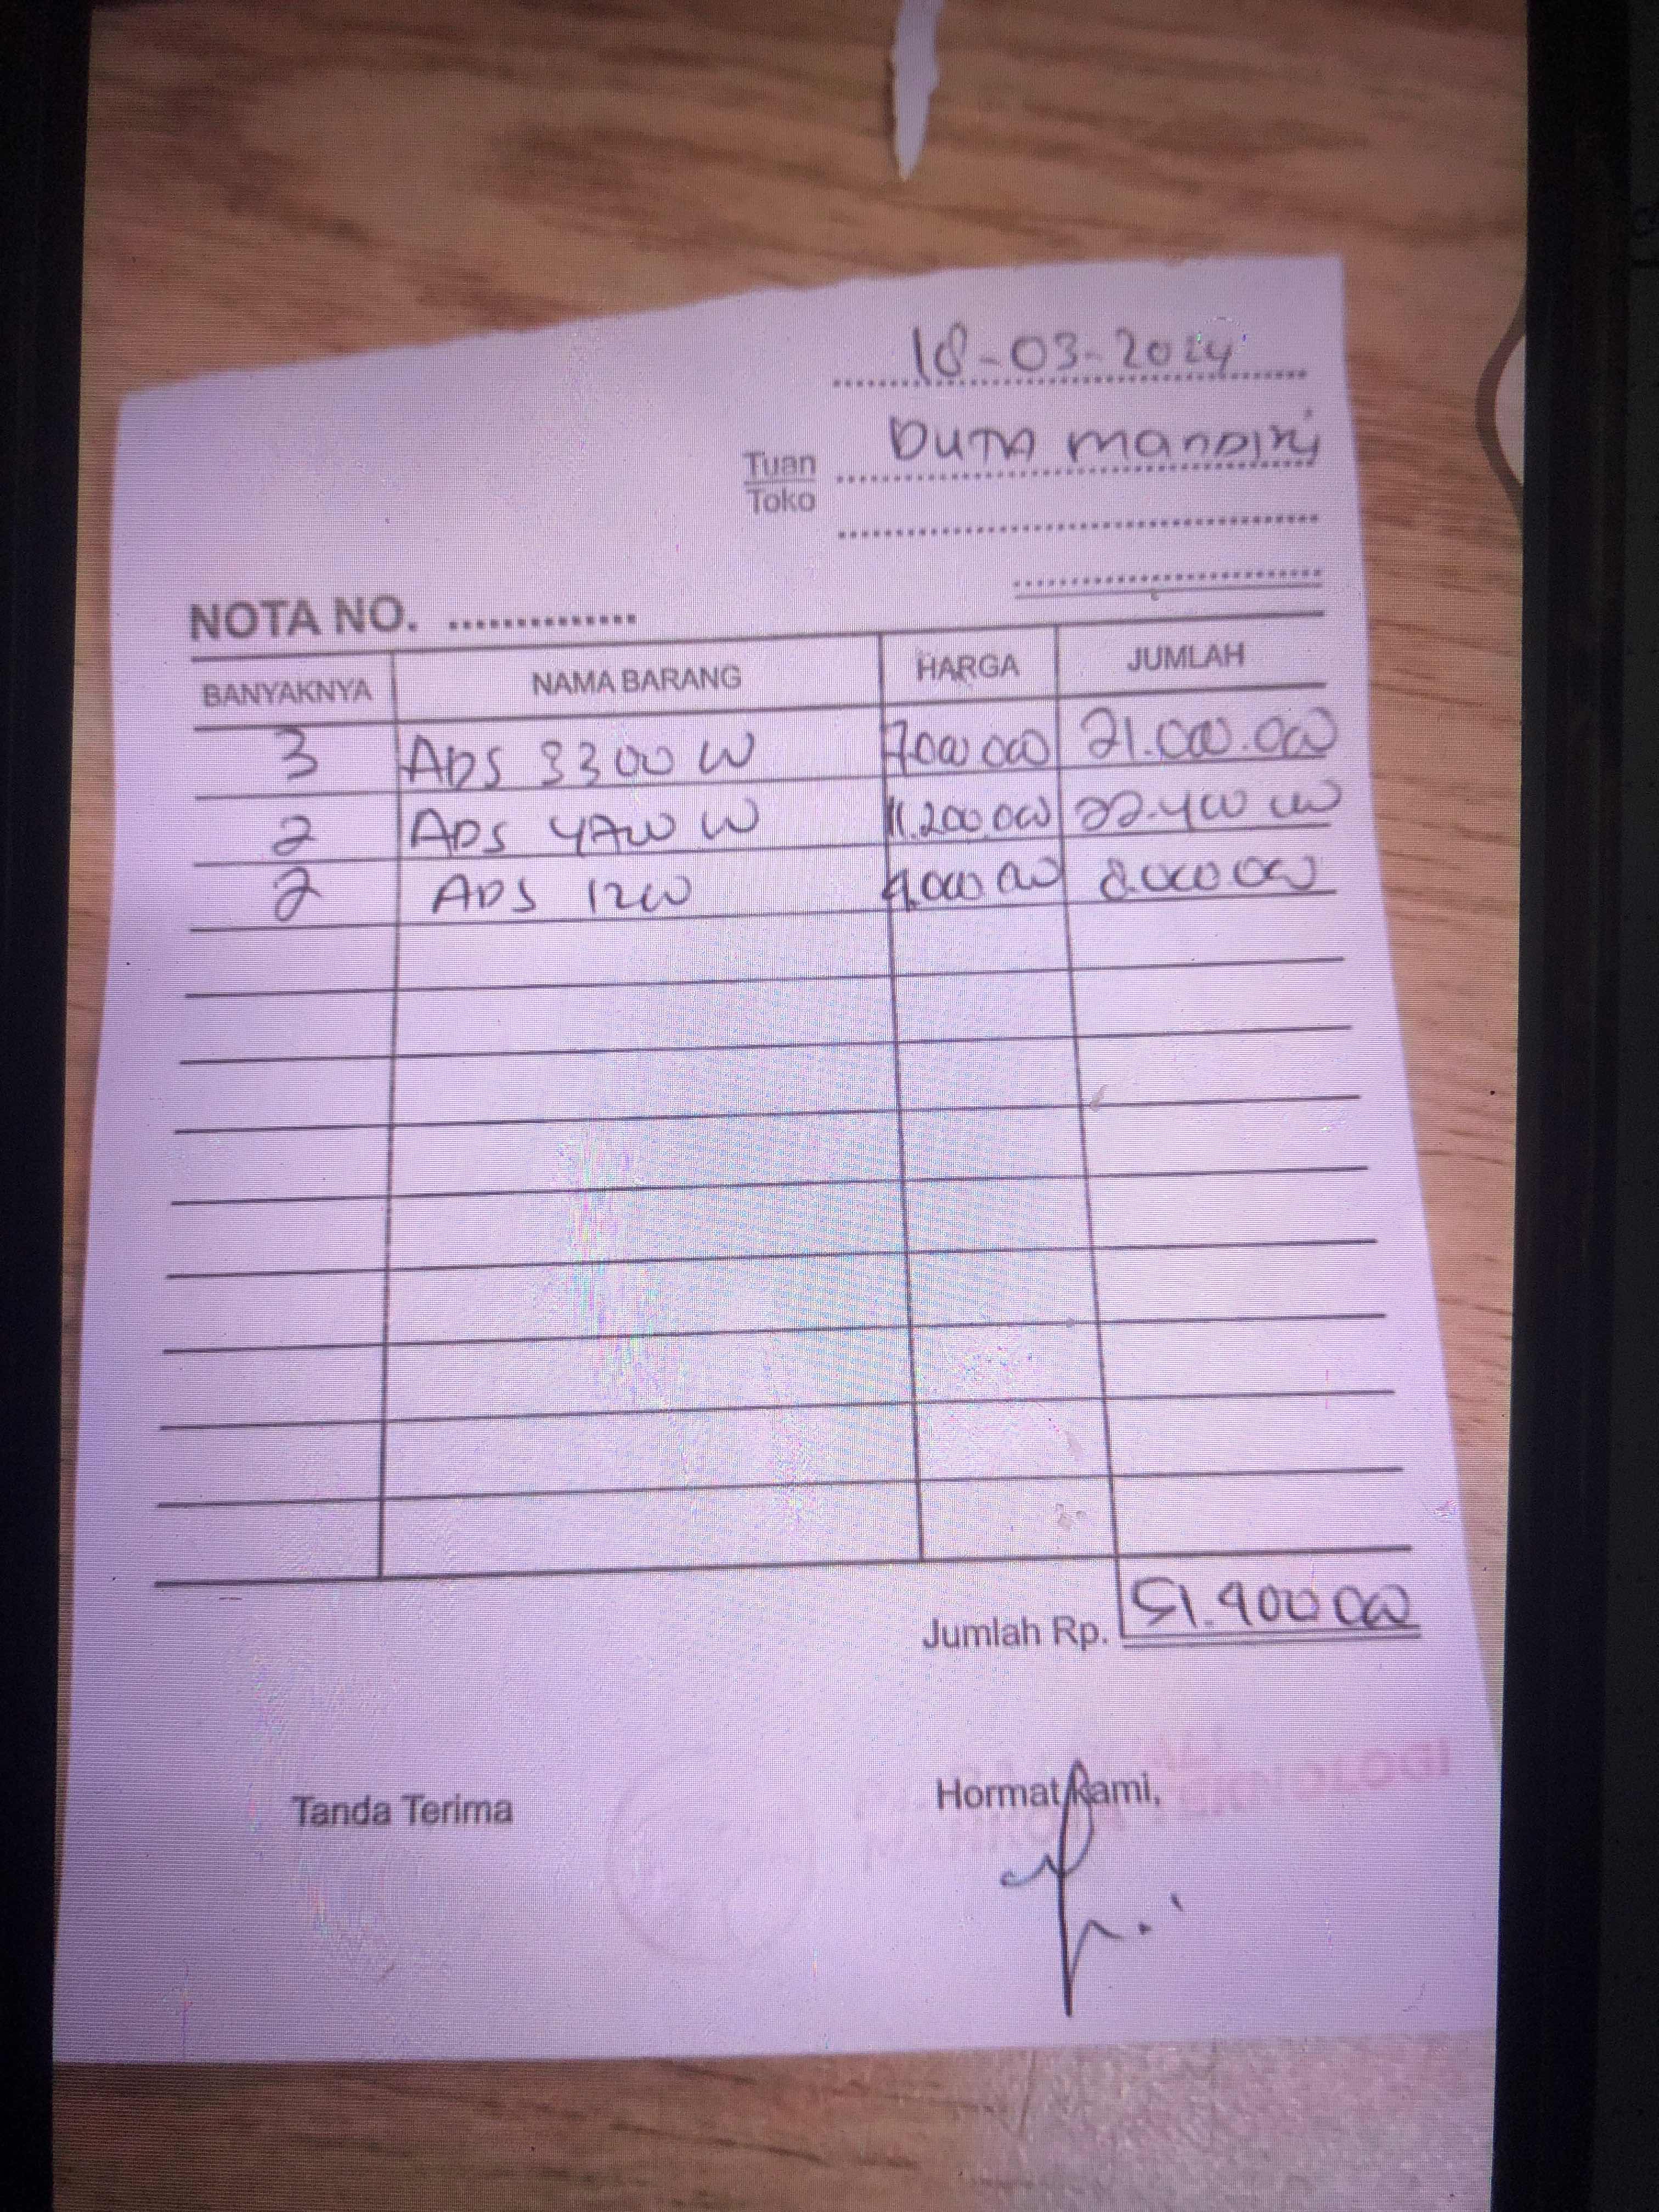 18-03-2024
Tuan
Toko
DUTA MANDIRI
NOTA NO. ..............
BANYAKNYA NAMA BARANG HARGA JUMLAH
3 ADS 3300 W 7000 000 21.000.000
2 ADS 4700 W 11.200.000 22.400 000
2 ADS 1200 4.000 000 8.000 000
Jumlah Rp. 51.400 000
Tanda Terima
Hormat Kami,
TEKNOLOGI